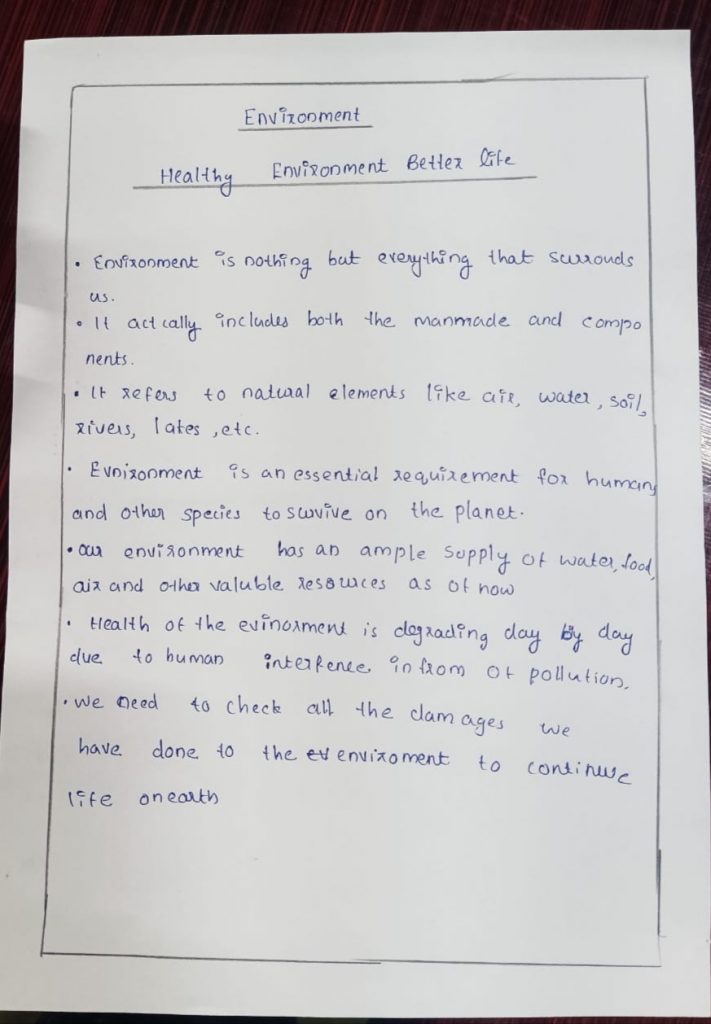 Environment
Healthy Environment Better life
• Environment is nothing but everything that surrouds
us.
• It actcally includes both the manmade and compo
nents.
• It refers to natural elements like air, water, soil,
rivers, lates, etc.
• Evnironment is an essential requirement for human
and other species to survive on the planet.
• our environment has an ample supply of water, food,
air and other valuble resources as of now
• Health of the evinorment is degrading day by day
due to human interfence in from of pollution.
• We need to check all the damages we
have done to the enviroment to continue
life on earth